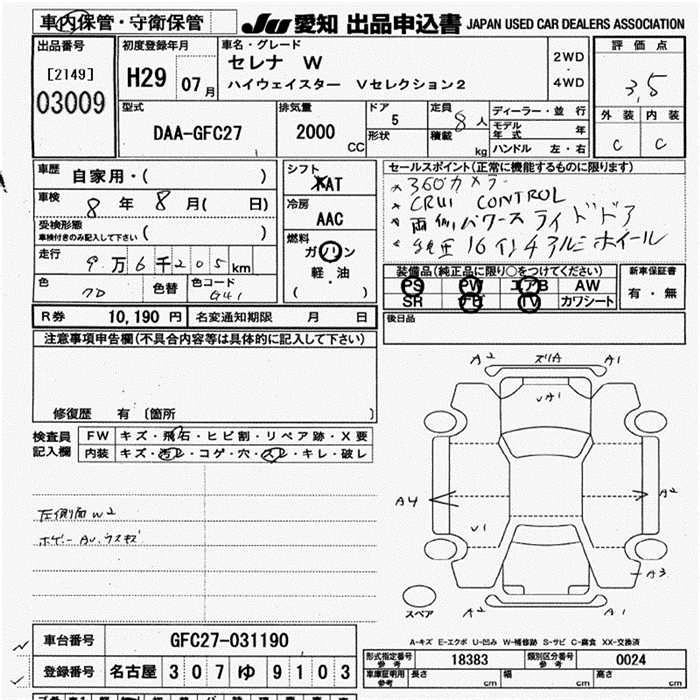 車内保管・守衛保管 JU 愛知 出品申込書 JAPAN USED CAR DEALERS ASSOCIATION
出品番号 [2149] 03009
初度登録年月 H29 07月
車名・グレード セレナ W
ハイウェイスター Vセレクション2
2WD・4WD
評価点 3.5
外装 内装
C C
型式 DAA-GFC27
排気量 2000 CC
ドア 5
形状
定員 8人
積載 kg
ディーラー・並行
モデル年式 年
ハンドル 左・右
車歴 自家用・( )
車検 8年 8月( 日)
受検形態
車検付きのみ記入して下さい ( )
走行 9万6千205km
色 色替 色コード G41
シフト AT
冷房 AAC
燃料 ガソリン
軽・油
( )
セールスポイント(正常に機能するものに限ります)
* 360カメラ
* CRUI CONTROL
* 両側パワースライドドア
* 純正16インチアルミホイール
装備品(純正品に限り○をつけてください)
PS PW エアB AW
SR ナビ TV カワシート
新車保証書
有・無
後日品
R券 10,190円 名変通知期限 月 日
注意事項申告欄(不具合内容等は具体的に記入して下さい)
修復歴 有 〔箇所 〕
検査員記入欄
FW キズ・飛石・ヒビ割・リペア跡・X要
内装 キズ・汚レ・コゲ・穴・スレ・キレ・破レ
左側面W2
ボデーAU.ウスキズ
A2 ズリA A1
UA1
A4 A2
U1
A3
A2 A1
スペア
A-キズ E-エクボ U-凹み W-補修跡 S-サビ C-腐食 XX-交換済
車台番号 GFC27-031190
登録番号 名古屋 307 ゆ 9103
形式指定番号 参考 18383
類別区分番号 参考 0024
車庫証明用 参考 長さ cm 幅 cm 高さ cm